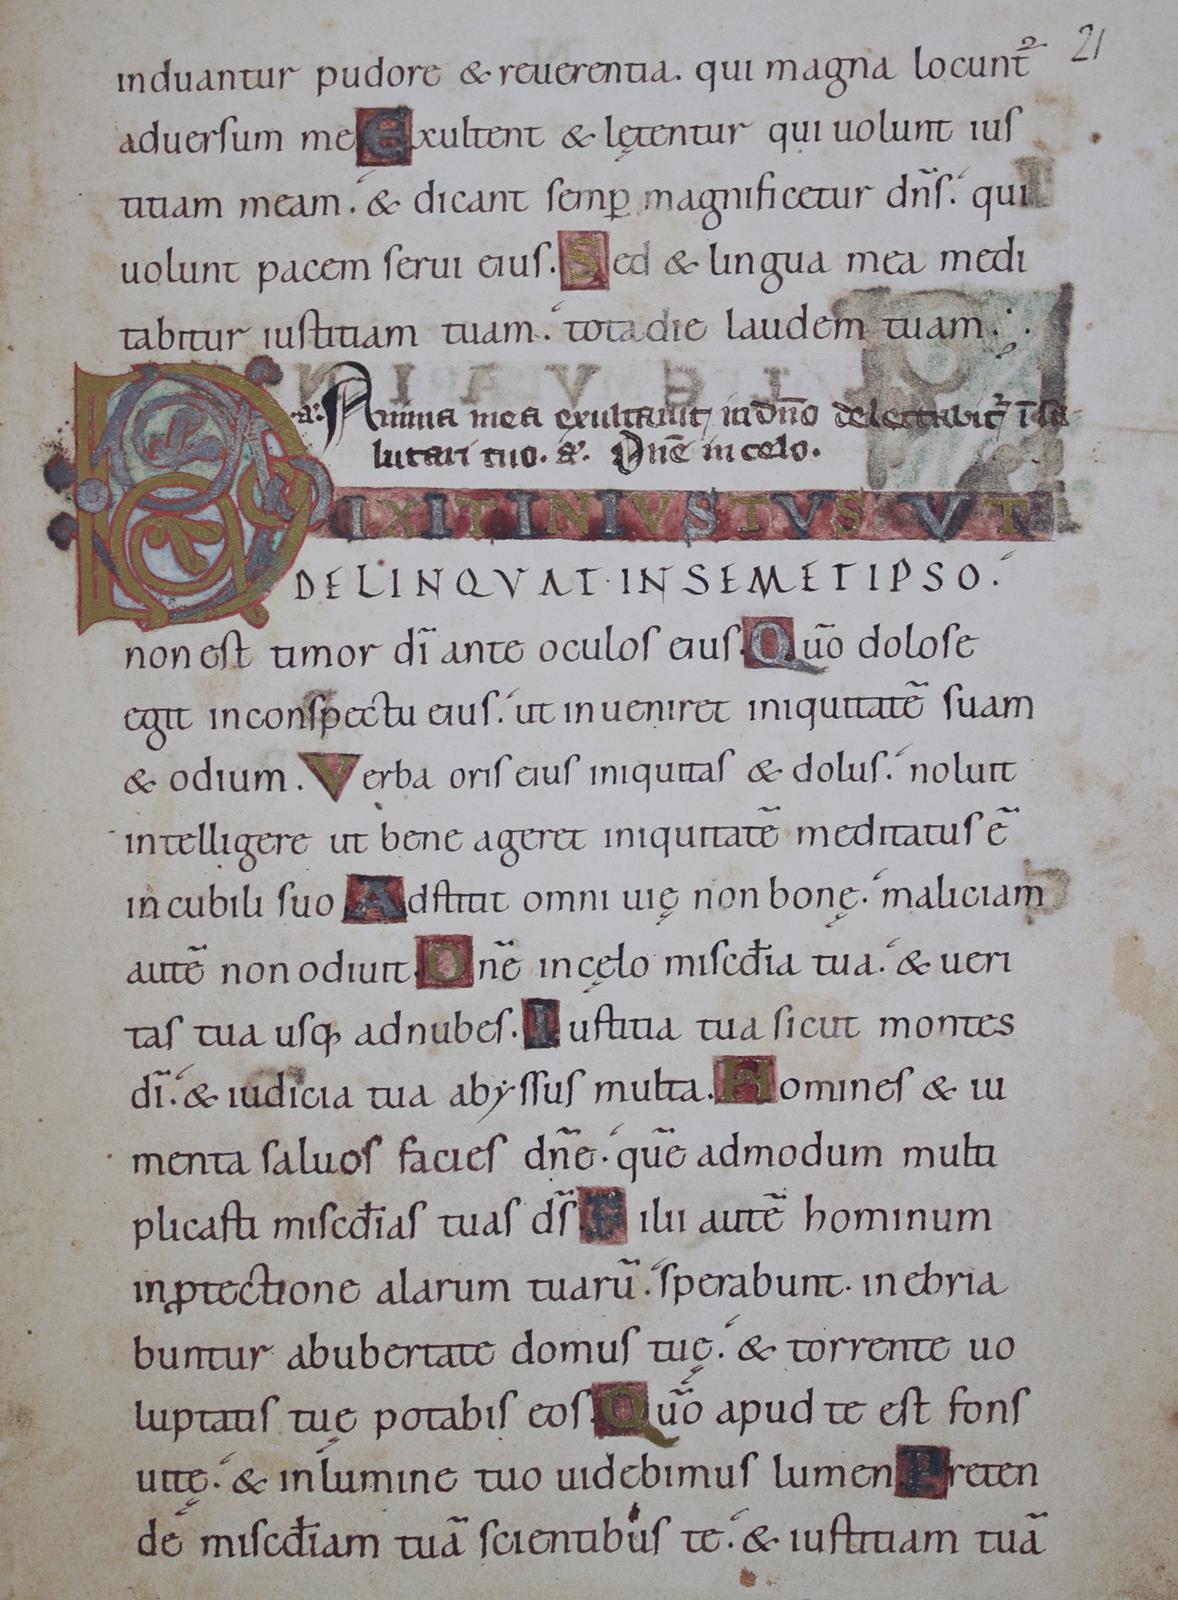 21
induantur pudore & reuerentia. qui magna locunt᷑
aduersum me Exultent & lętentur qui uolunt ius
titiam meam. & dicant semp magnificetur dñs. qui
uolunt pacem serui eius. Sed & lingua mea medi
tabitur iustitiam tuam. tota die laudem tuam.
a. Anima mea exultauit in dño delectabit᷑ ī sa
lutari tuo. a. Dñe in celo.
DIXIT INIUSTUS UT
DELINQVAT·IN SEMETIPSO.
non est timor dī ante oculos eius. Qūo dolose
egit in conspectu eius. ut inueniret iniquitatē suam
& odium. Verba oris eius iniquitas & dolus. noluit
intelligere ut bene ageret iniquitatē meditatus ē
in cubili suo Adstitit omni uię non bonę. maliciam
autē non odiuit. Dñe in cęlo misc̄dia tua. & ueri
tas tua usq; ad nubes. Iustitia tua sicut montes
dī. & iudicia tua abyssus multa. Homines & iu
menta saluos facies dñe. quē admodum multi
plicasti misc̄dias tuas ds̄ Filii autē hominum
in ꝓtectione alarum tuarū. sperabunt. inebria
buntur ab ubertate domus tuę. & torrente uo
luptatis tuę potabis eos. Qūo apud te est fons
uitę. & in lumine tuo uidebimus lumen Preten
de misc̄diam tuā scientibus te. & iustitiam tuā